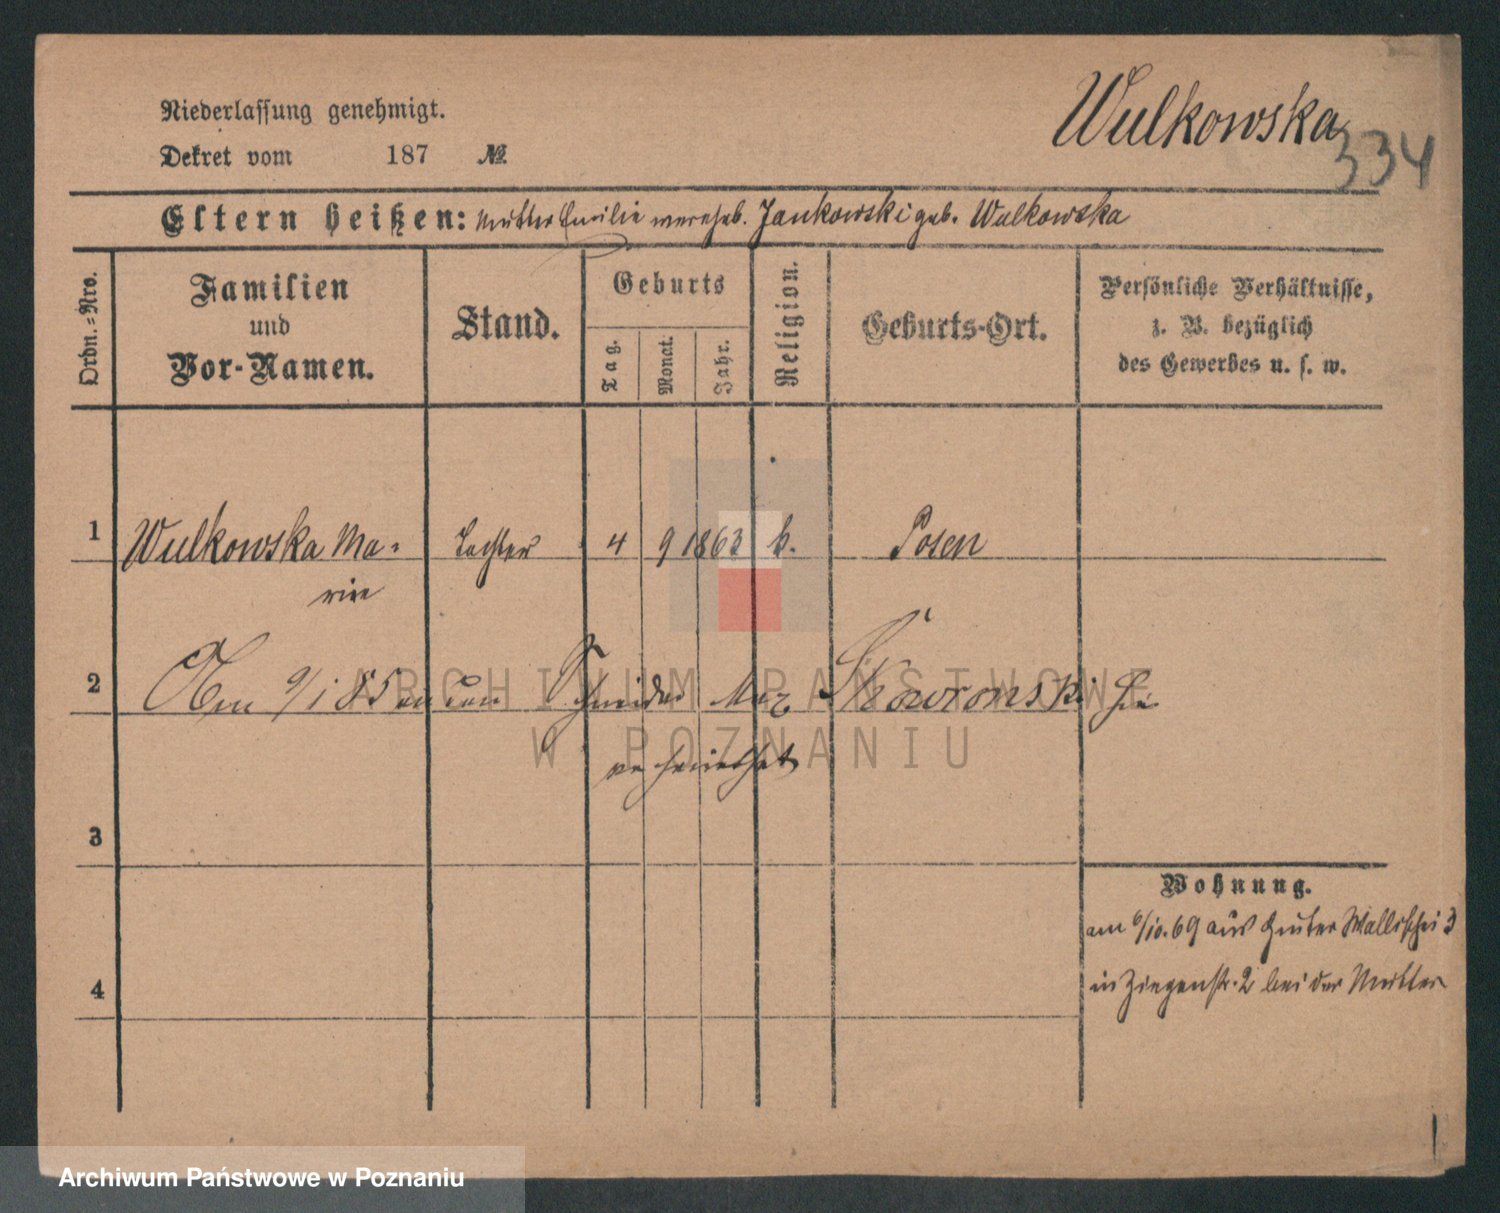 Niederlassung genehmigt.
Dekret vom 187 №
Wulkowska
334
Eltern heißen: Mutter Emilie verehel. Jankowski geb. Wulkowska
Ordn.-Nro.
Familien
und
Vor-Namen.
Stand.
Geburts
Tag.
Monat.
Jahr.
Religion.
Geburts-Ort.
Persönliche Verhältnisse,
z. B. bezüglich
des Gewerbes u. s. w.
1 Wulkowska Ma- Tochter 4 9 1863 k. Posen
rie
2 Am 9/1 85 an den Schneider Skowronski hier
verheirathet
3
Wohnung.
am 6/10.69 aus Wallischei 3
in Ziegenstr. 2 bei der Mutter
4
ARCHIWUM PAŃSTWOWE
W POZNANIU
Archiwum Państwowe w Poznaniu